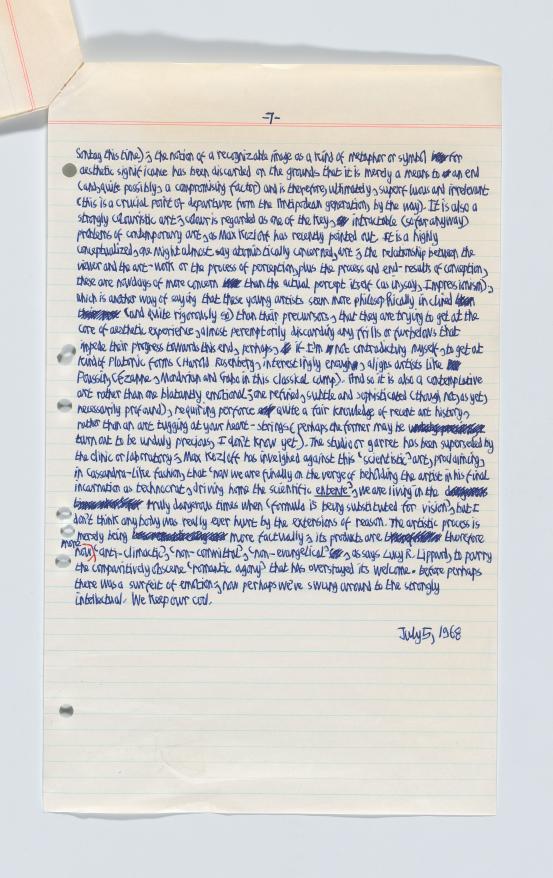 -7-
Sontag this time); the notion of a recognizable image as a kind of metaphor or symbol for
aesthetic significance has been discarded on the grounds that it is merely a means to an end
(and quite possibly, a compromising factor) and is therefore, ultimately, superfluous and irrelevant
(this is a crucial point of departure from the Antipodean generation, by the way). It is also a
strongly colouristic art; colour is regarded as one of the key, intractable (so far anyway)
problems of contemporary art, as Max Kozloff has recently pointed out. It is a highly
conceptualized, one might almost say atomistically concerned, art; the relationship between the
viewer and the art-work or the process of perception, plus the process and end-results of conception,
these are nowadays of more concern than the actual percept itself (as in, say, Impressionism),
which is another way of saying that these young artists seem more philosophically inclined
(and quite rigorously so) than their precursors, that they are trying to get at the
core of aesthetic experience, almost peremptorily discarding any frills or furbelows that
impede their progress towards this end, perhaps, if I'm not contradicting myself, to get at
kind of Platonic forms (Harold Rosenberg, interestingly enough, aligns artists like
Poussin, Cézanne, Mondrian and Gabo in this classical camp). And so it is also a contemplative
art rather than one blatantly emotional; one refined, subtle and sophisticated (though not, as yet,
necessarily profound), requiring perforce quite a fair knowledge of recent art history,
rather than an art tugging at your heart-strings (perhaps the former may be
turn out to be unduly precious, I don't know yet). The studio or garret has been superseded by
the clinic or laboratory; Max Kozloff has inveighed against this 'scientistic' art, proclaiming,
in Cassandra-like fashion, that 'now we are finally on the verge of beholding the artist in his final
incarnation as technocrat, driving home the scientific entente', we are living in the
truly dangerous times when 'formula is being substituted for vision', but I
don't think anybody was really ever hurt by the extensions of reason. The artistic process is
merely being more factually; its products are therefore
more
now 'anti-climactic', 'non-committal', 'non-evangelical', as says Lucy R. Lippard, to parry
the comparitively obscene 'romantic agony' that has overstayed its welcome. Before perhaps
there was a surfeit of emotion; now perhaps we've swung around to the strongly
intellectual. We keep our cool.
July 5, 1968